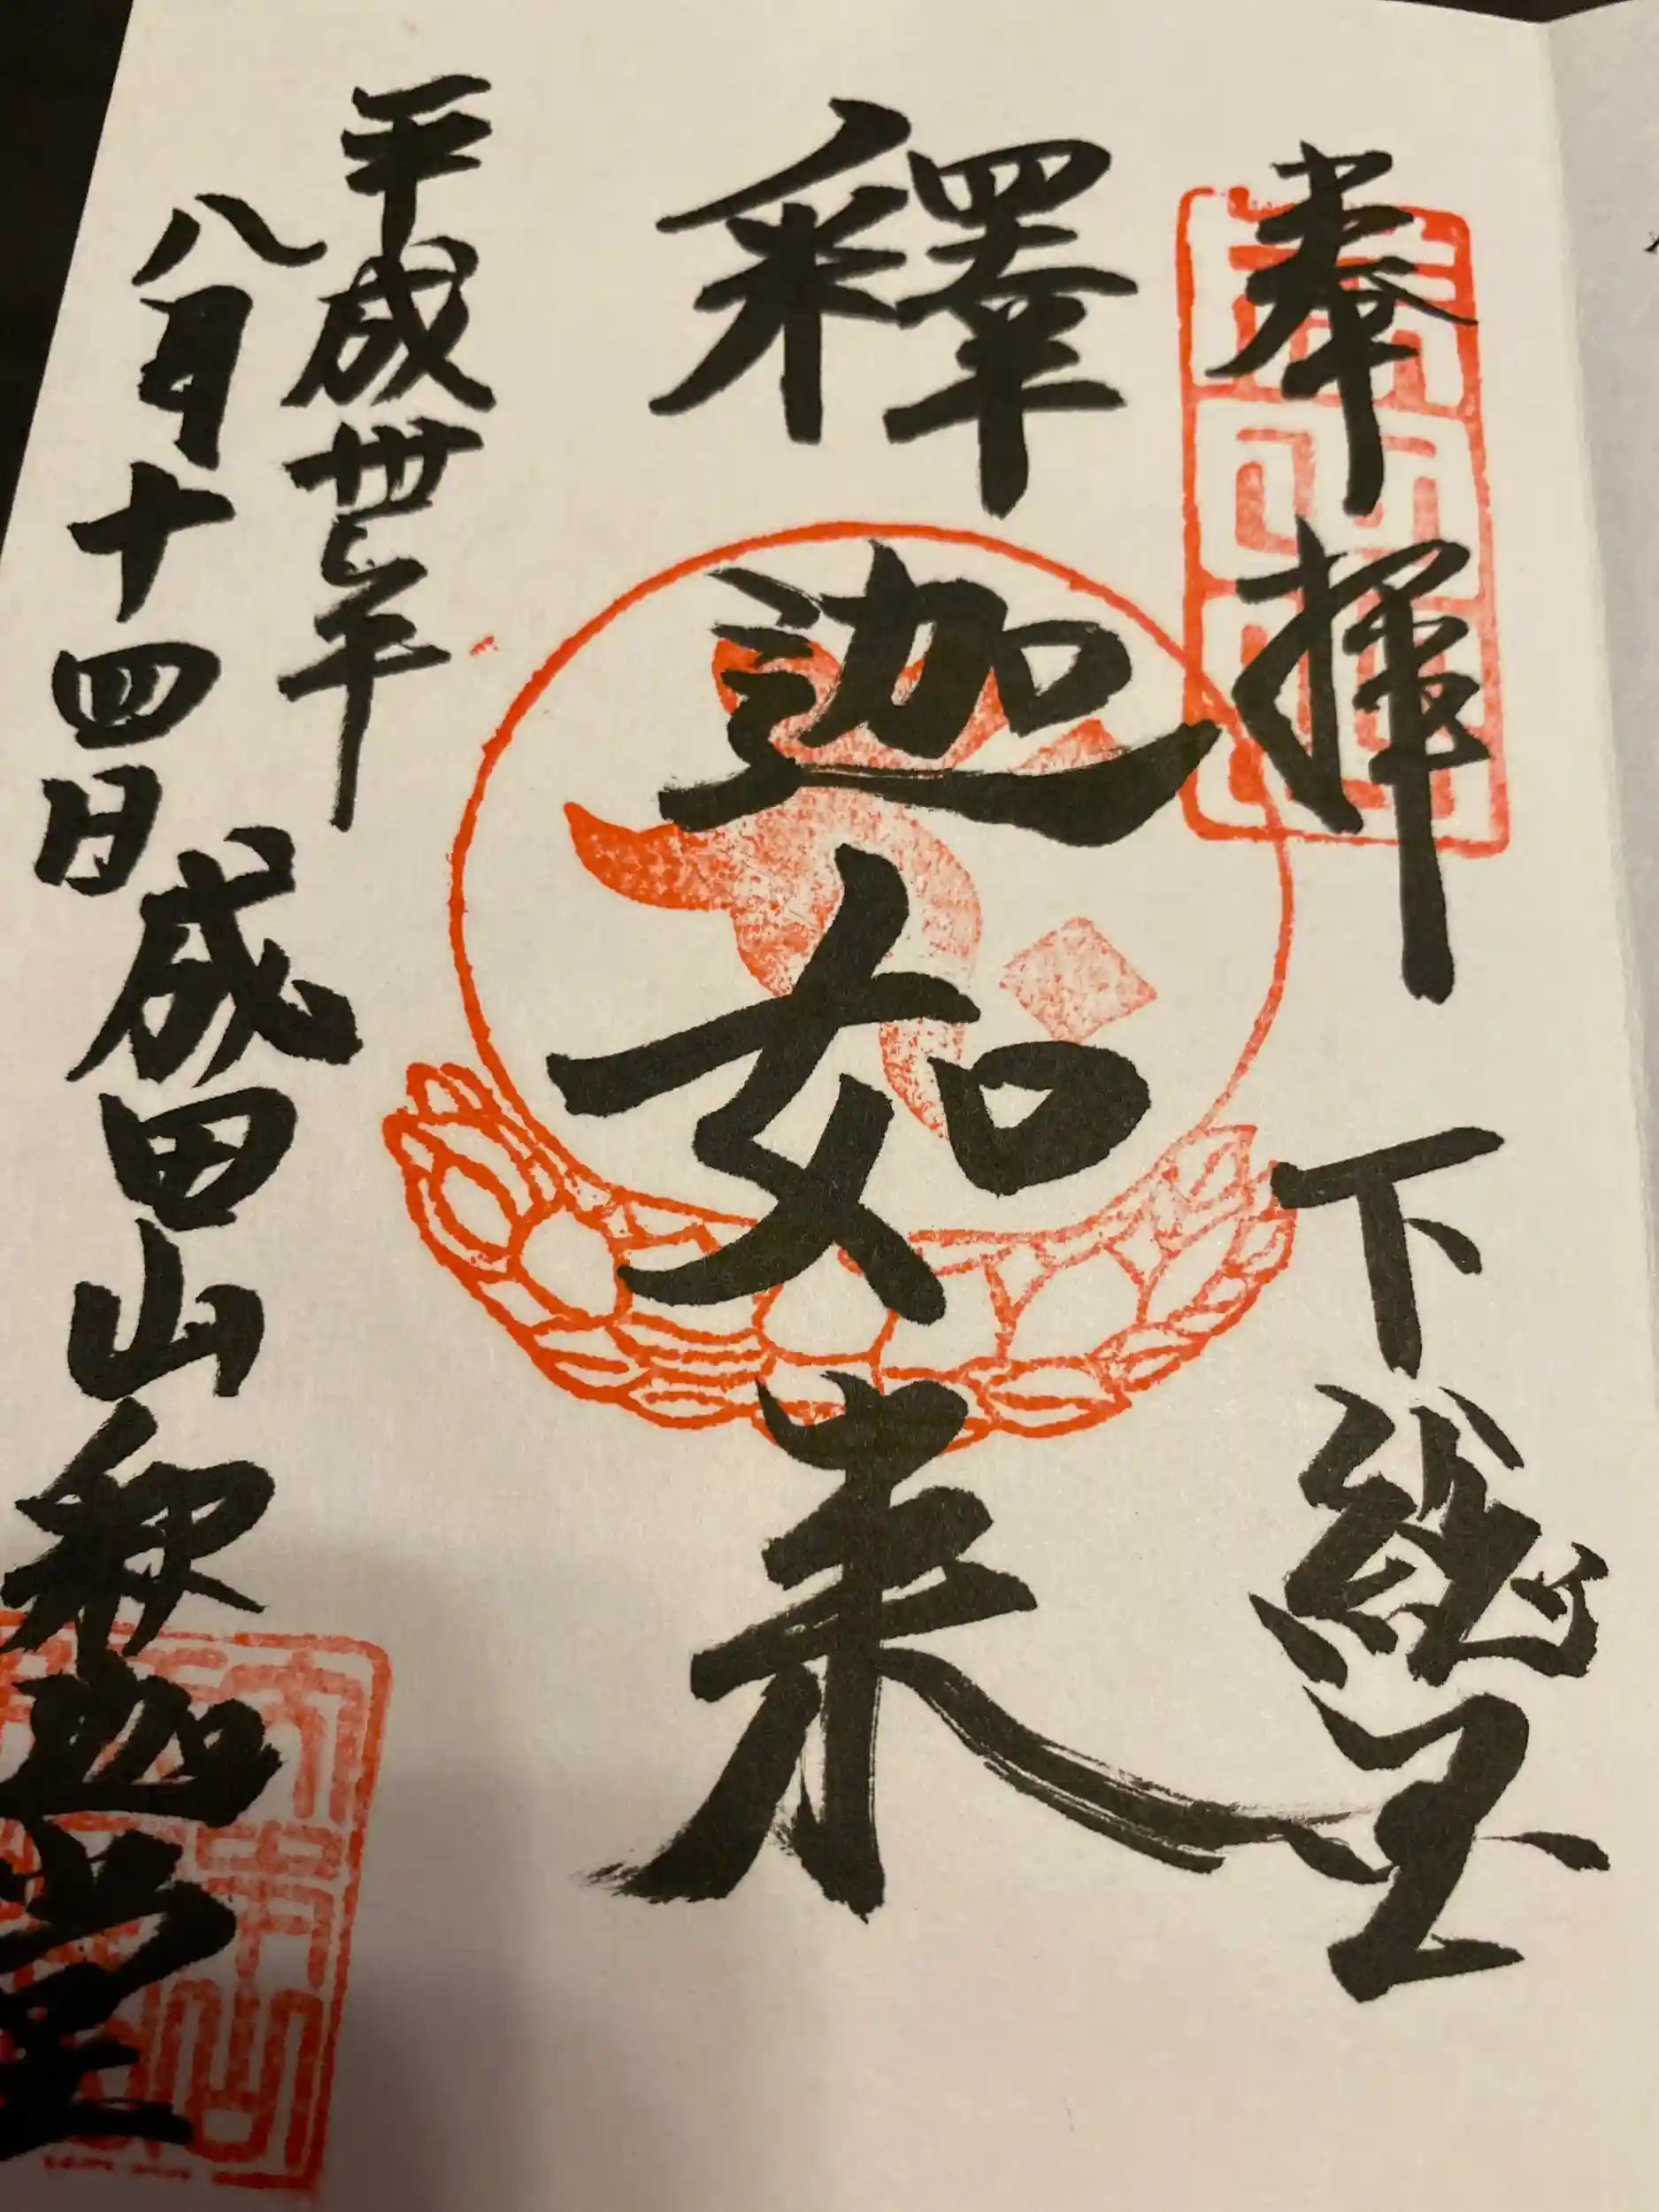 奉拝 下総国
釋迦如来
平成卅年
八月十四日
成田山釈迦堂